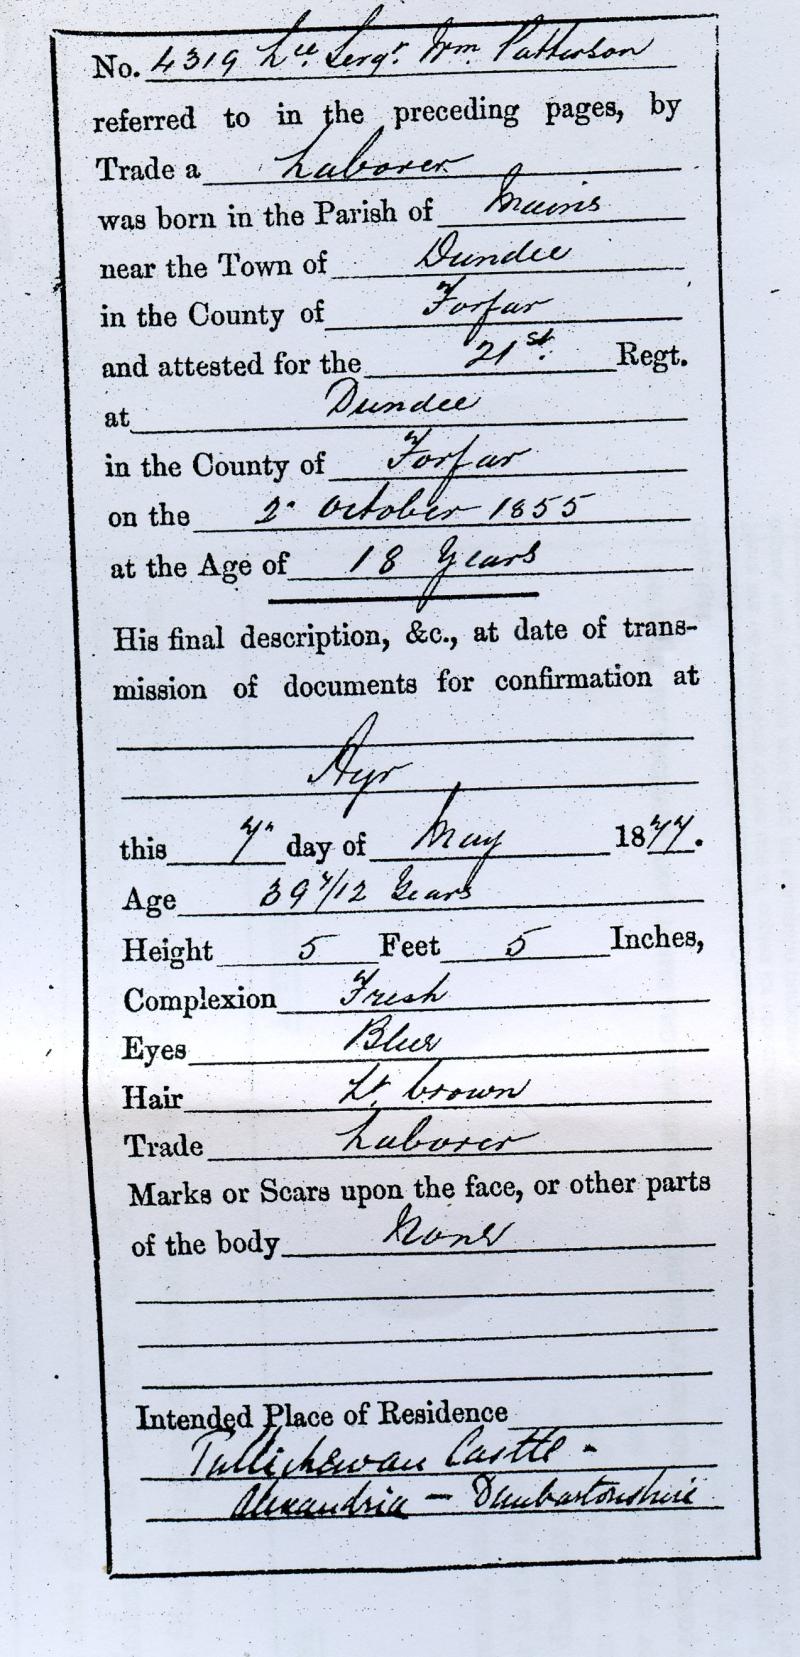 No. 4319 Lce. Sergt. Wm. Patterson
referred to in the preceding pages, by
Trade a Laborer
was born in the Parish of Mains
near the Town of Dundee
in the County of Forfar
and attested for the 21st. Regt.
at Dundee
in the County of Forfar
on the 2d October 1855
at the Age of 18 Years
His final description, &c., at date of trans-
mission of documents for confirmation at
Ayr
this 7th day of May 1877.
Age 39 7/12 Years
Height 5 Feet 5 Inches,
Complexion Fresh
Eyes Blue
Hair Lt. brown
Trade Laborer
Marks or Scars upon the face, or other parts
of the body None
Intended Place of Residence
Tullichewan Castle -
Alexandria - Dumbartonshire